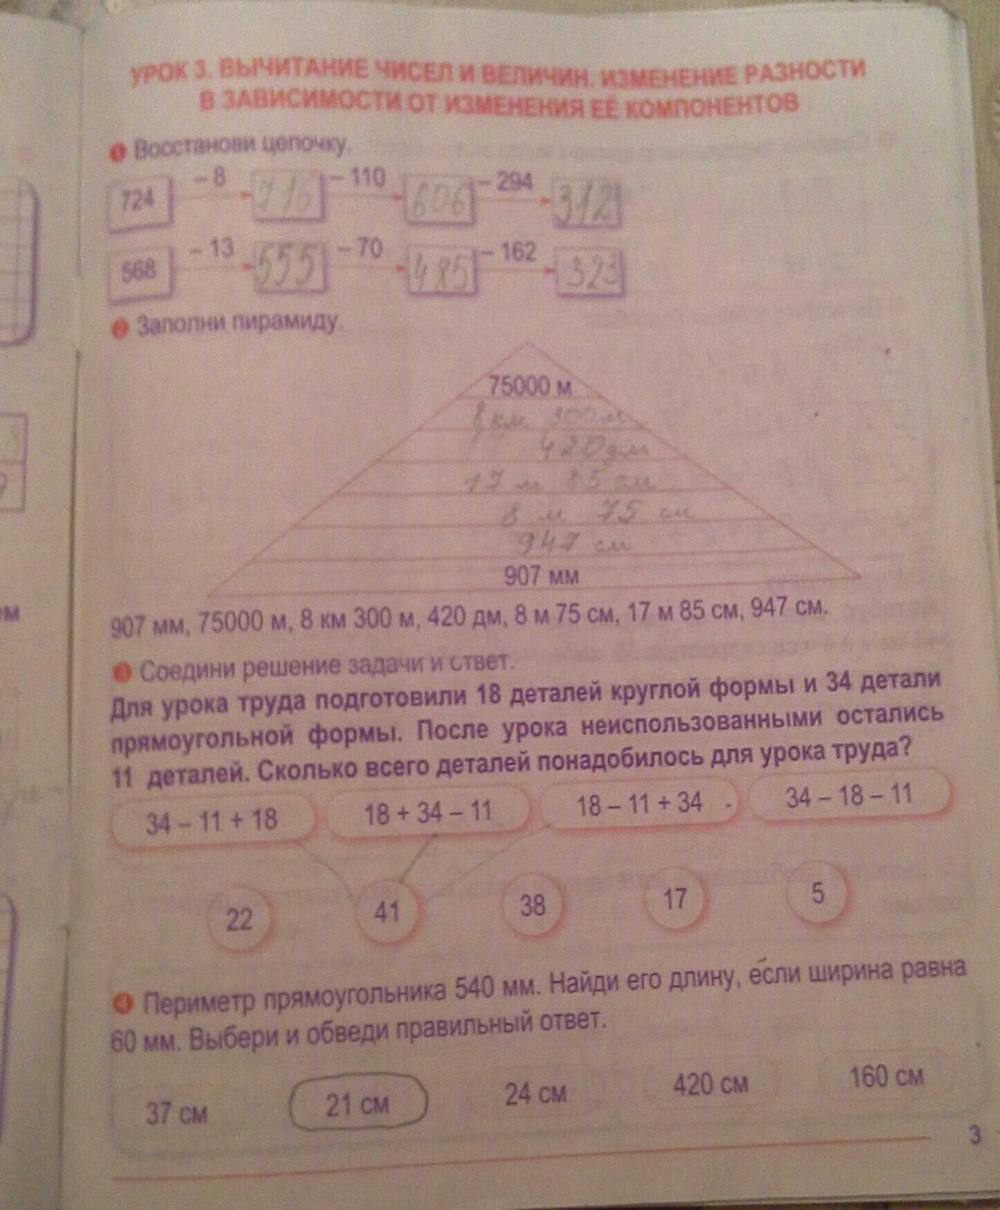 УРОК 3. ВЫЧИТАНИЕ ЧИСЕЛ И ВЕЛИЧИН. ИЗМЕНЕНИЕ РАЗНОСТИ
В ЗАВИСИМОСТИ ОТ ИЗМЕНЕНИЯ ЕЁ КОМПОНЕНТОВ
1 Восстанови цепочку.
724 – 8 716 – 110 606 – 294 312
568 – 13 555 – 70 485 – 162 323
2 Заполни пирамиду.
75000 м
8 км 300 м
420 дм
17 м 85 см
8 м 75 см
947 см
907 мм
907 мм, 75000 м, 8 км 300 м, 420 дм, 8 м 75 см, 17 м 85 см, 947 см.
3 Соедини решение задачи и ответ.
Для урока труда подготовили 18 деталей круглой формы и 34 детали
прямоугольной формы. После урока неиспользованными остались
11 деталей. Сколько всего деталей понадобилось для урока труда?
34 – 11 + 18 18 + 34 – 11 18 – 11 + 34 34 – 18 – 11
22 41 38 17 5
4 Периметр прямоугольника 540 мм. Найди его длину, если ширина равна
60 мм. Выбери и обведи правильный ответ.
37 см 21 см 24 см 420 см 160 см
3